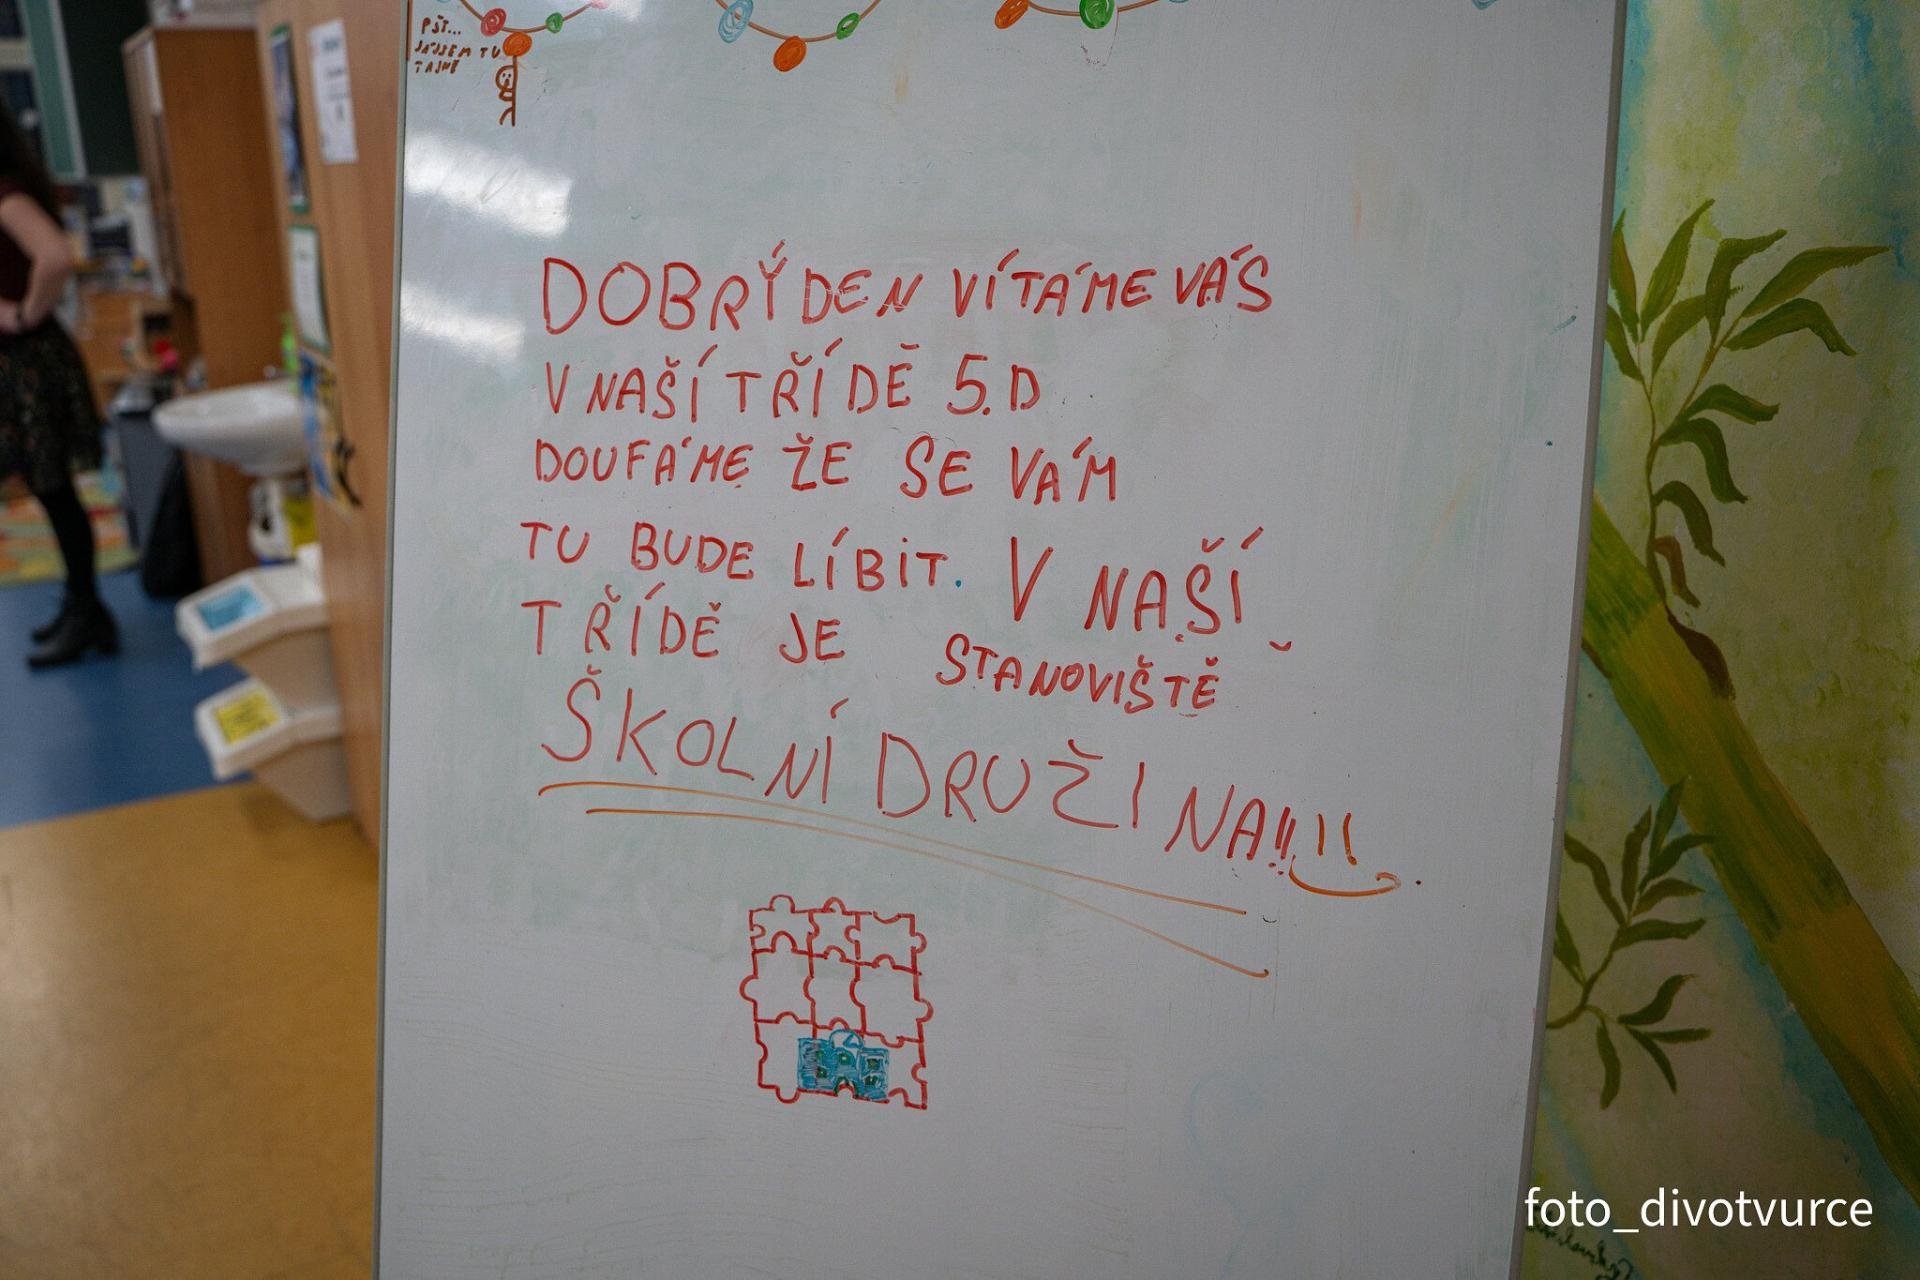 PŠT...
JÁ JSEM TU
TAJNĚ
DOBRÝ DEN VÍTÁME VÁS
V NAŠÍ TŘÍDĚ 5.D
DOUFÁME ŽE SE VÁM
TU BUDE LÍBIT. V NAŠÍ
TŘÍDĚ JE STANOVIŠTĚ
ŠKOLNÍ DRUŽINA!!!!
foto_divotvurce